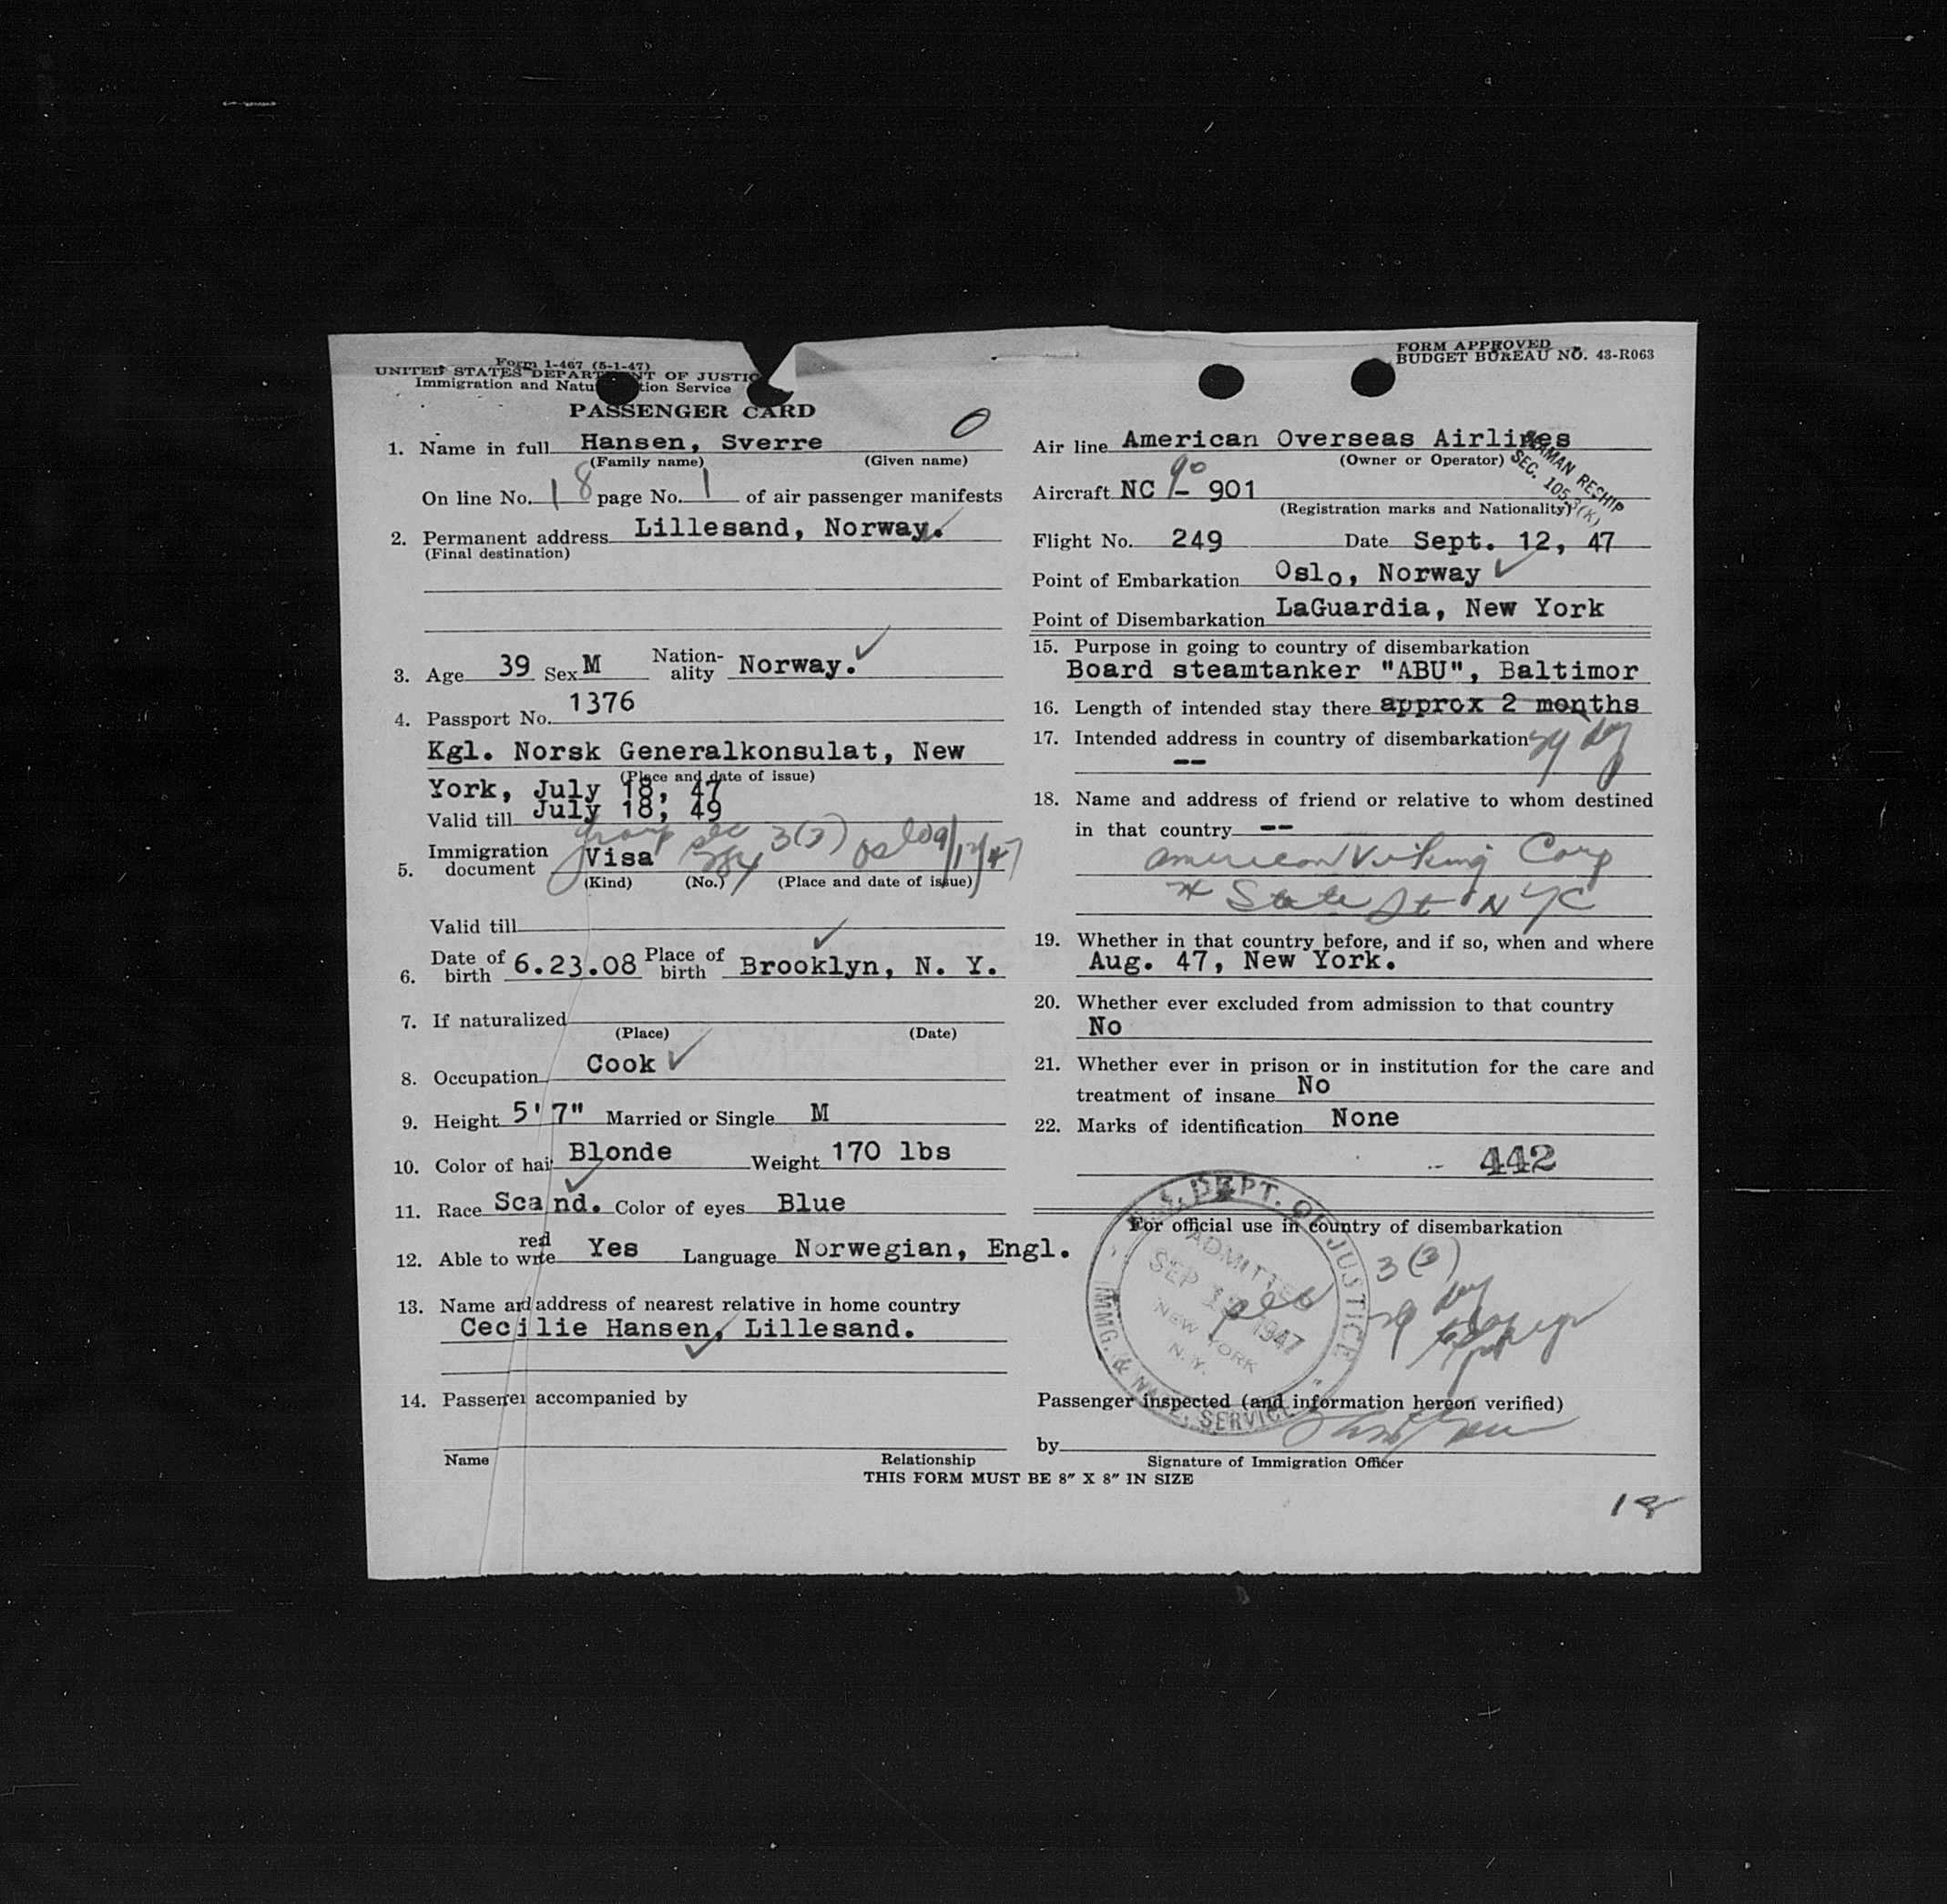 Form 1-467 (5-1-47)
UNITED STATES DEPARTMENT OF JUSTIC
Immigration and Natu tion Service
PASSENGER CARD
FORM APPROVED
BUDGET BUREAU NO. 43-R063
1. Name in full Hansen, Sverre 0
(Family name) (Given name)
On line No. 18 page No. 1 of air passenger manifests
2. Permanent address Lillesand, Norway.
(Final destination)
3. Age 39 Sex M Nation-ality Norway.
4. Passport No. 1376
Kgl. Norsk Generalkonsulat, New
(Place and date of issue)
York, July 18, 47
Valid till July 18, 49
5. Immigration document Visa 3(3) Oslo 9/12/47
(Kind) (No.) (Place and date of issue)
Valid till
6. Date of birth 6.23.08 Place of birth Brooklyn, N. Y.
7. If naturalized
(Place) (Date)
8. Occupation Cook
9. Height 5' 7" Married or Single M
10. Color of hair Blonde Weight 170 lbs
11. Race Scand. Color of eyes Blue
12. Able to read write Yes Language Norwegian, Engl.
13. Name and address of nearest relative in home country
Cecilie Hansen, Lillesand.
14. Passenger accompanied by
Name Relationship
Air line American Overseas Airlines
(Owner or Operator)
SEAMAN RESHIP
SEC. 105.3(K)
Aircraft NC - 901
90
(Registration marks and Nationality)
Flight No. 249 Date Sept. 12, 47
Point of Embarkation Oslo, Norway
Point of Disembarkation LaGuardia, New York
15. Purpose in going to country of disembarkation
Board steamtanker "ABU", Baltimor
16. Length of intended stay there approx 2 months
17. Intended address in country of disembarkation 29 day
--
18. Name and address of friend or relative to whom destined
in that country --
American Viking Corp
State St NYC
19. Whether in that country before, and if so, when and where
Aug. 47, New York.
20. Whether ever excluded from admission to that country
No
21. Whether ever in prison or in institution for the care and
treatment of insane No
22. Marks of identification None
442
For official use in country of disembarkation
U.S. DEPT. OF JUSTICE
ADMITTED
SEP 1947
NEW YORK
N.Y.
IMMG. & NATZ. SERVICE
3(3)
29 day
Passenger inspected (and information hereon verified)
by
Signature of Immigration Officer
THIS FORM MUST BE 8" X 8" IN SIZE
18